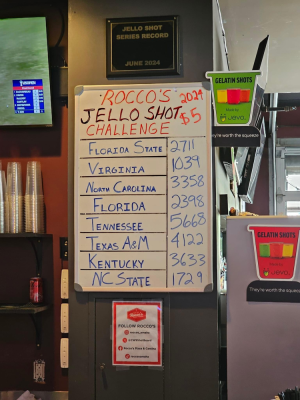 JELLO SHOT
SERIES RECORD
JUNE 2024
ROCCO'S 2024
JELLO SHOT $5
CHALLENGE
FLORIDA STATE 2711
VIRGINIA 1039
NORTH CAROLINA 3358
FLORIDA 2398
TENNESSEE 5668
TEXAS A&M 4122
KENTUCKY 3633
NC STATE 1729
GELATIN SHOTS
JEVO
They're worth the squeeze
GELATIN SHOTS
JEVO
They're worth the squeeze
FOLLOW ROCCO'S